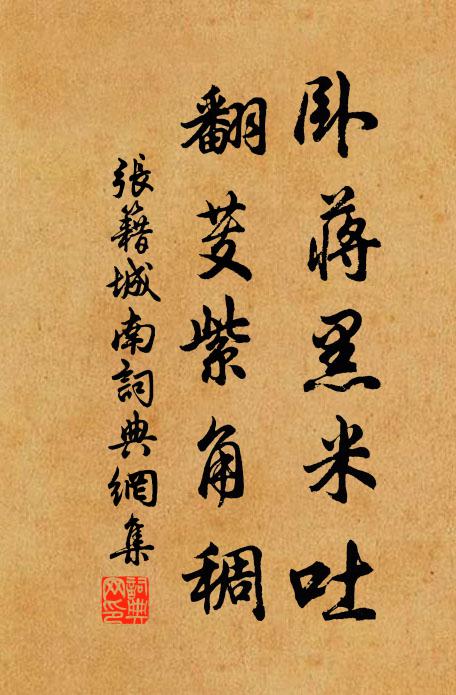 卧蔣黑米吐
翻芰紫角稠
張籍城南詞典網集
詞典网印